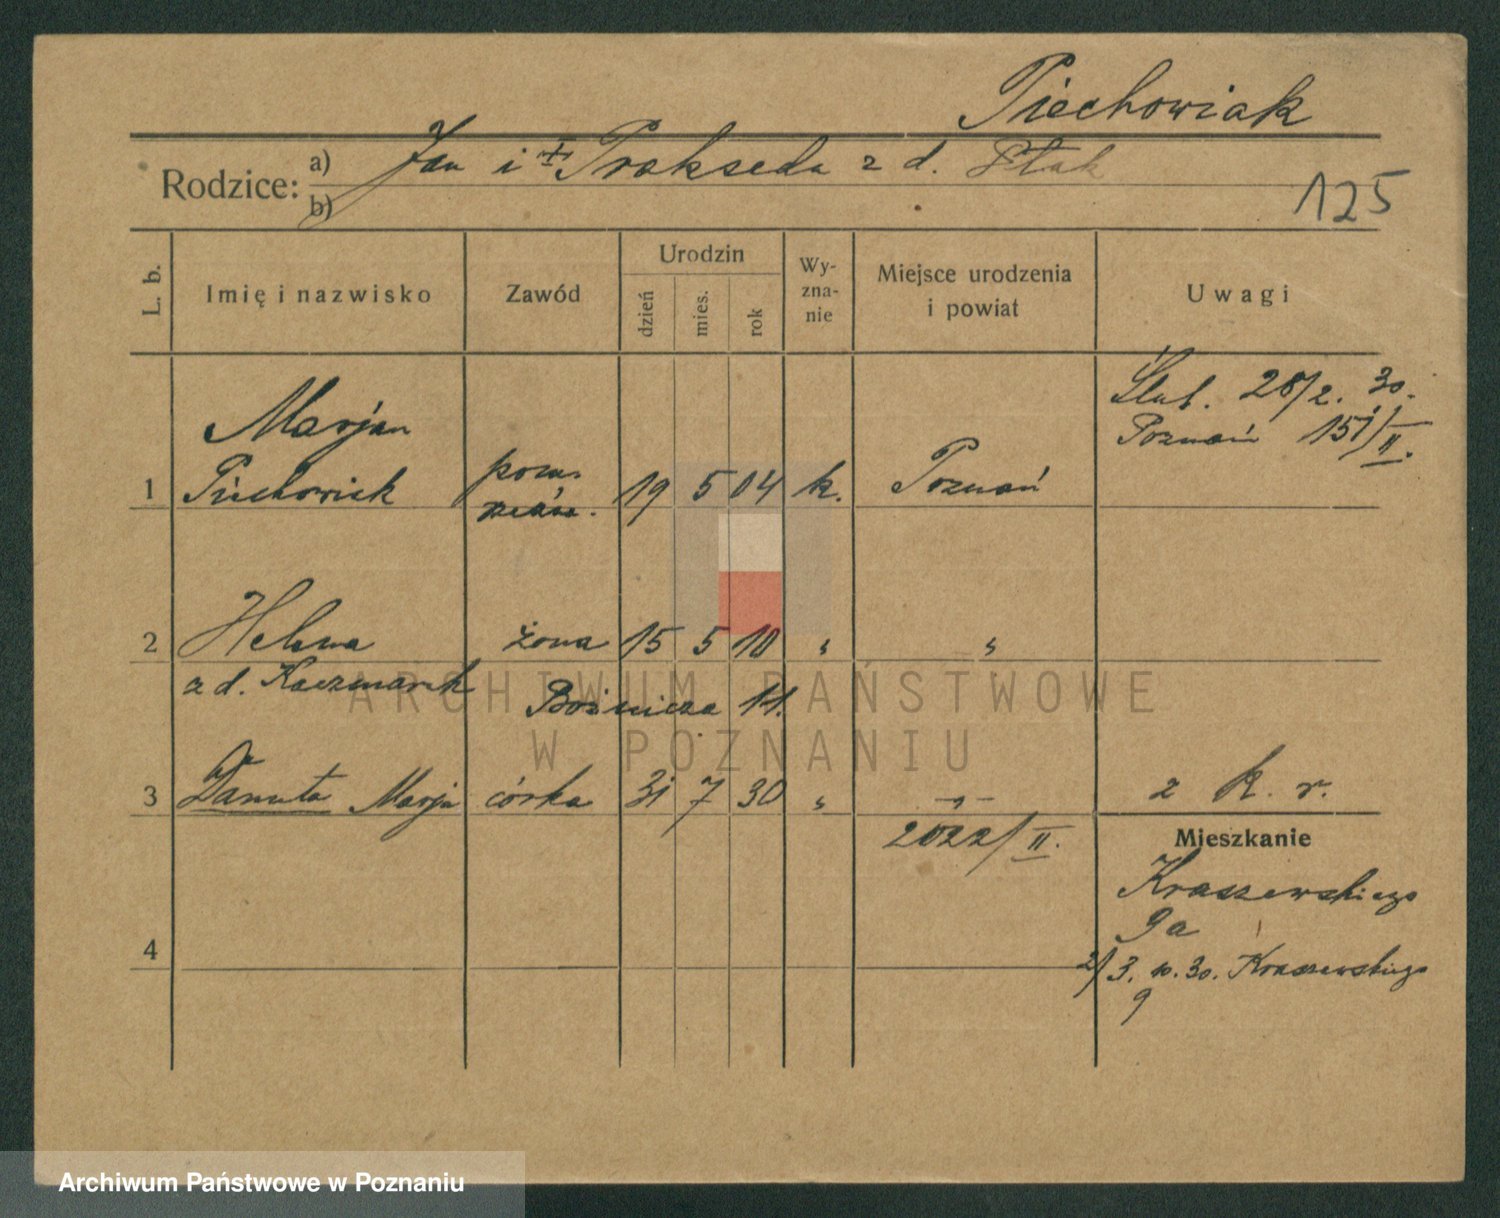 Piechowiak
Rodzice: a) Jan i + Prakseda z d. Ptak
b)
125
L. b.
Imię i nazwisko
Zawód
Urodzin
dzień
mies.
rok
Wy-
zna-
nie
Miejsce urodzenia
i powiat
Uwagi
Ślub. 28/2. 30.
Poznań 151/II.
Marjan
1 Piechowiak pom. 19 5 04 k. Poznań
2 Helena żona 15 5 10 " "
z d. Kaczmarek
Bożnicza 14.
3 Danuta Marja córka 31 7 30 " "
2022/II.
2 k. r.
Mieszkanie
Kraszewskiego
9a
4
2/ 3. 10. 30. Kraszewskiego
9
ARCHIWUM PAŃSTWOWE
W POZNANIU
Archiwum Państwowe w Poznaniu